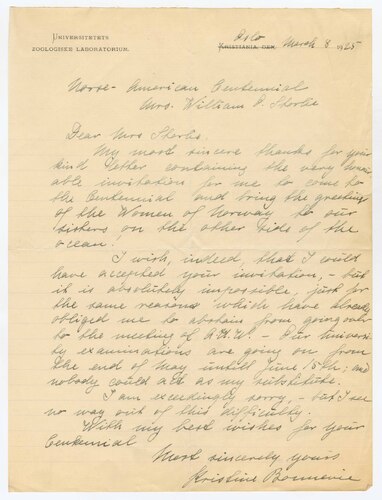 UNIVERSITETETS
ZOOLOGISKE LABORATORIUM.
Oslo
KRISTIANIA DEN March 8 1925
Norse-American Centennial
Mrs. William O. Storlie
Dear Mrs Storlie.
My most sincere thanks for your
kind letter containing the very honor
able invitation for me to come to
the Centennial and bring the greeting
of the Women of Norway to our
sisters on the other side of the
ocean!
I wish, indeed, that I could
have accepted your invitation, - but
it is absolutely impossible, just for
the same reasons which have already
obliged me to abstain from going over
to the meeting of - Our Universi
ty examinations are going on from
the end of May until June 15th; and
nobody could act as my substitute.
I am exceedingly sorry, - but I see
no way out of this difficulty.
With my best wishes for your
Centennial
Most sincerely yours
Kristine Bonnevie